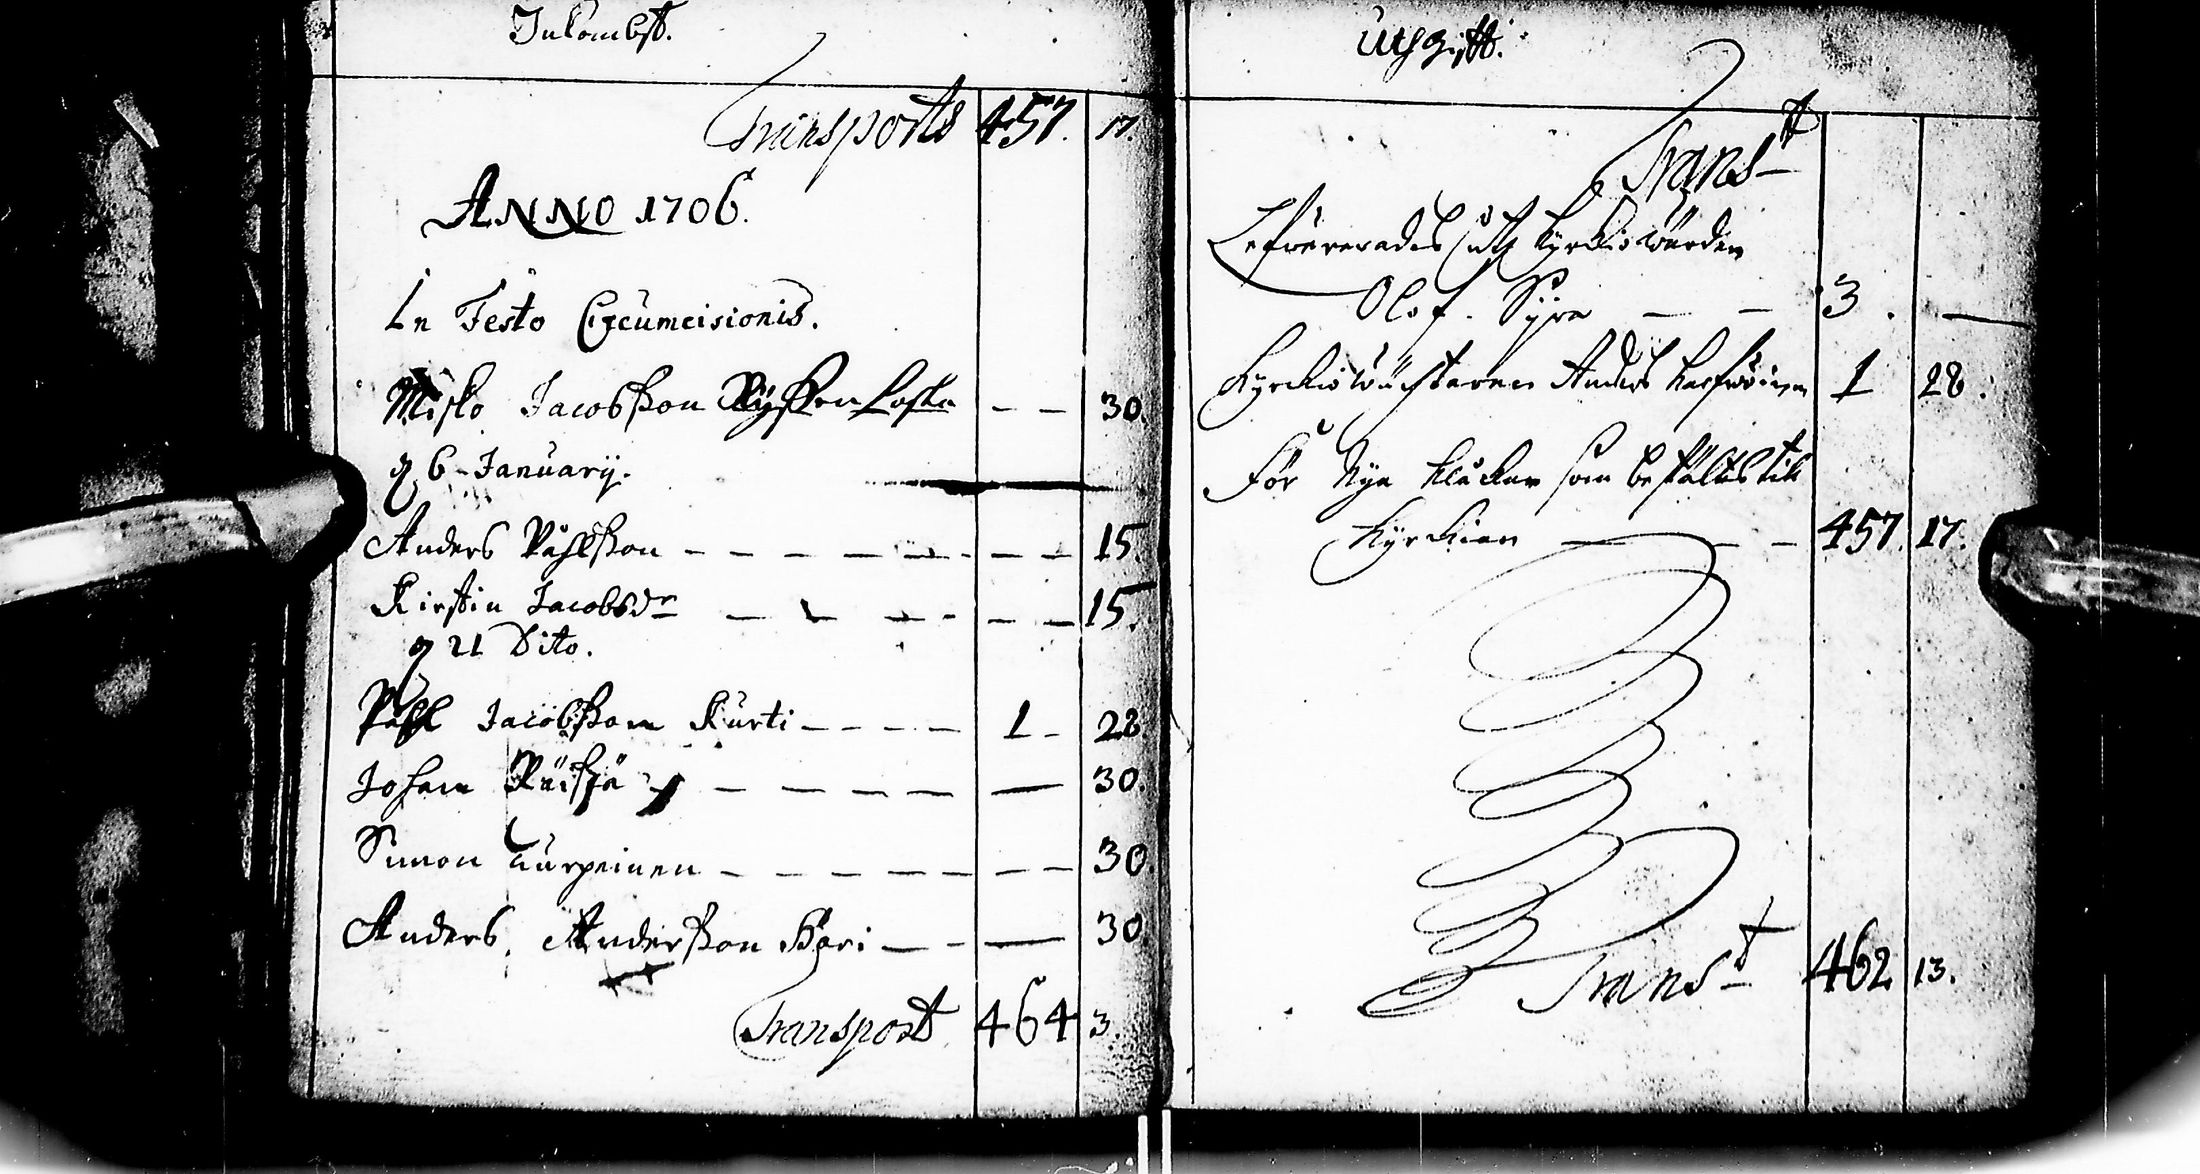 Inkombst.
Transports 457. 17.
ANNO 1706.
In Festo Circumcisionis.
Misko Jacobsson - - 30.
d 6 January.
Anders Påhlsson - - - - - - - - 15.
Kirstin Jacobsdr - - - - - - - 15.
d 21 Dito.
Påhl Jacobsson Kurti - - - - 1 - 28
Joham Räisjä - - - - - - - 30.
Simon Turpeinen - - - - - - - - 30.
Anders Andersson Häri - - - 30.
Transport 464 3.
Utgifft.
Transt
Lefwererades uth Kyrkiowärden
Olof Syre - - 3. -
Kyrkiowächtaren Anders 1 28.
För Nya som bestältes till
Kyrkian - - - 457. 17.
Transt 462 13.